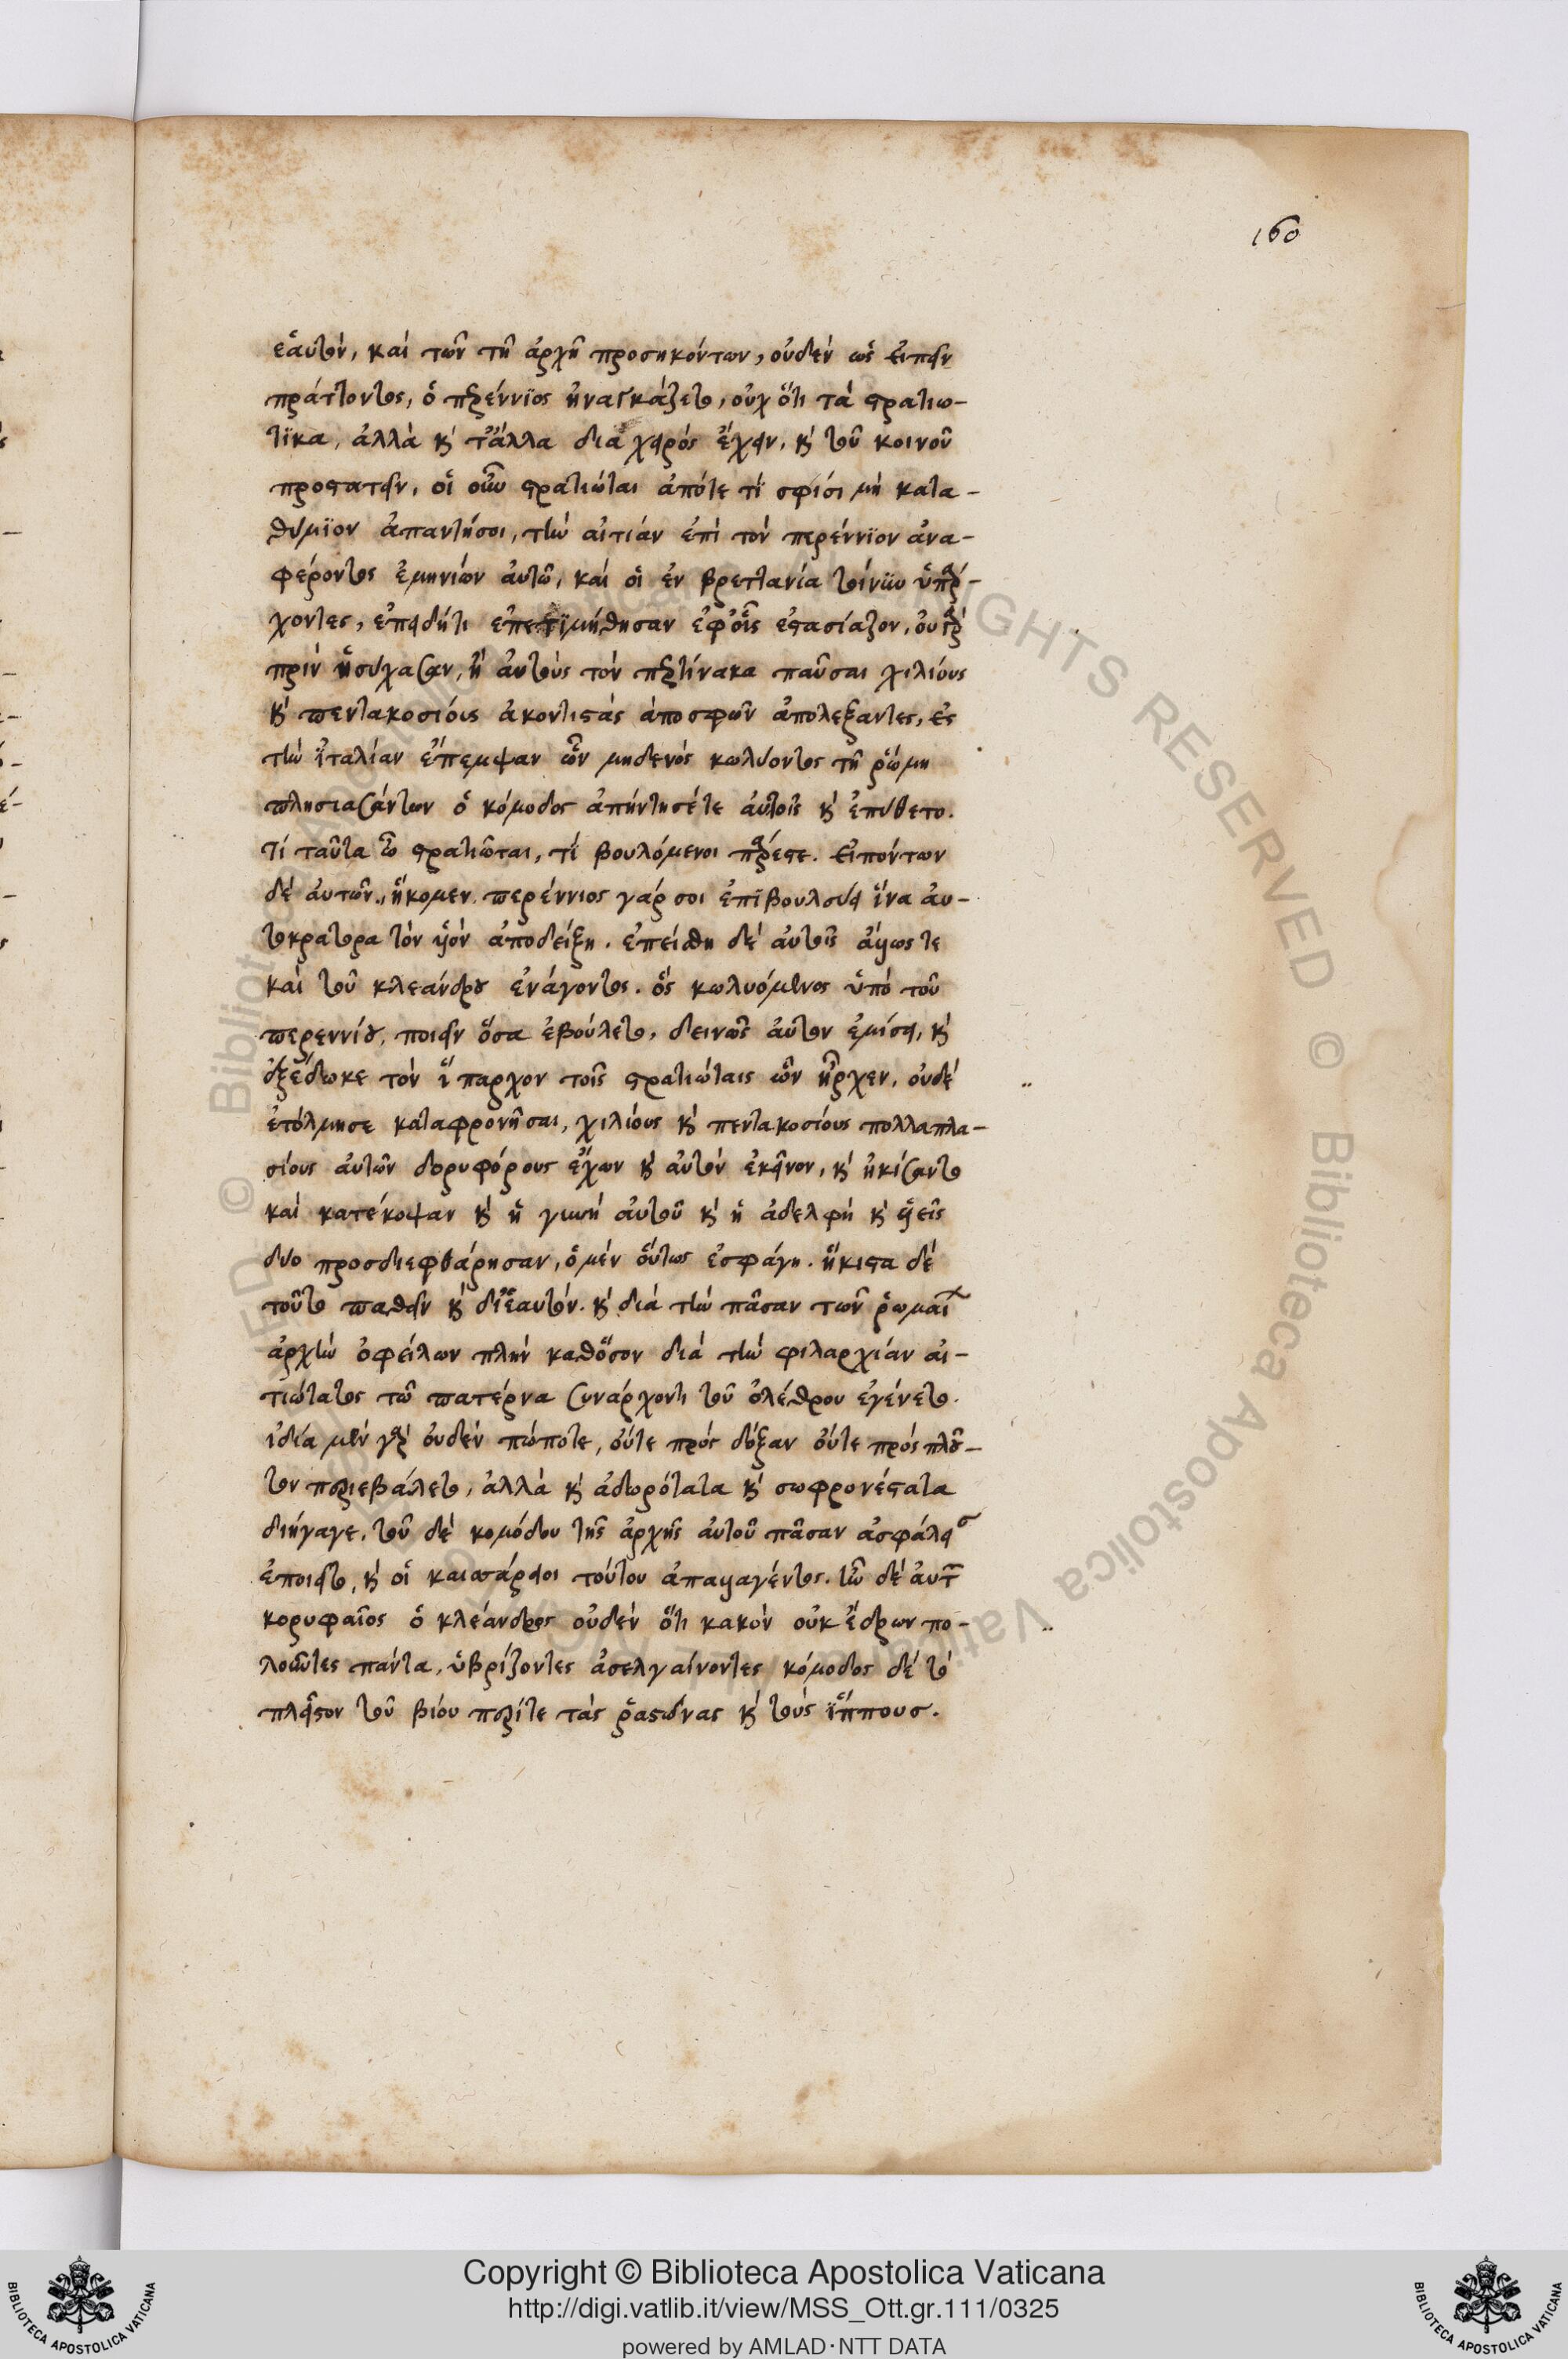 160
ἑαυτὸν, καὶ τῶν τῇ ἀρχῇ προσηκόντων, οὐδὲν ὡς εἰπεῖν
πράττοντος, ὁ περέννϊος ἠναγκάζετο, οὐχ ὅτι τὰ στρατιω-
τϊκὰ, ἀλλὰ καὶ τἄλλα διὰ χειρὸς ἔχειν, καὶ τοῦ κοινοῦ
προστατεῖν, οἱ οὖν στρατιῶται ἁπότε τὶ σφίσι μὴ κατα-
θύμϊον ἀπαντήσοι, τὴν αἰτίαν ἐπὶ τὸν περέννϊον ἀνα-
φέροντος ἐμηνίων αὐτῶ, καὶ οἱ ἐν βρεττανία τοίνυν ὑπάρ-
χοντες, ἐπειδήτι ἐπετϊμήθησαν ἐφ' οἷς ἐστασίαζον, οὐ γὰρ
πρὶν ἡσύχασαν, ἢ αὐτοὺς τὸν περτίνακα παῦσαι χιλίους
καὶ πεντακοσίους ἀκοντιστὰς ἀπὸ σφῶν ἀπολέξαντες, ἐς
τὴν ἰταλίαν ἔπεμψαν ὧν μηδενὸς κωλύοντος τῇ ῥώμη
πλησιασάντων ὁ κόμοδος ἀπήντησέ τε αὐτοῖς καὶ ἐπύθετο.
τί ταῦτα ὦ στρατιῶται, τί βουλόμενοι πάρεστε. εἰπόντων
δὲ αὐτῶν, ἥκομεν. περέννιος γάρ σοι ἐπϊβουλεύει ἵνα αὐ-
τοκράτορα τὸν υἱὸν ἀποδείξη. ἐπείσθη δὲ αὐτοῖς ἄλλως τε
καὶ τοῦ κλεάνδρου ἐνάγοντος. ὃς κωλυόμενος ὑπὸ τοῦ
περεννίου, ποιεῖν ὅσα ἐβούλετο, δεινῶς αὐτὸν ἐμίσει, καὶ
ἐξέδωκε τὸν ὕπαρχον τοῖς στρατιώταις ὧν ἦρχεν, οὐδὲ
ἐτόλμησε καταφρονῆσαι, χιλίους καὶ πεντακοσίους πολλαπλα-
σίους αὐτῶν δορυφόρους ἔχων καὶ αὐτὸν ἐκεῖνον, καὶ ἠκίσαντο
καὶ κατέκοψαν καὶ ἡ γυνὴ αὐτοῦ καὶ ἡ ἀδελφὴ καὶ υἱεῖς
δύο προσδιεφθάρησαν, ὁ μὲν οὕτως ἐσφάγη. ἥκιστα δὲ
τοῦτο παθεῖν καὶ δι' ἑαυτὸν. καὶ διὰ τὴν πᾶσαν τῶν ῥωμαί
ἀρχὴν ὀφείλων πλὴν καθόσον διὰ τὴν φιλαρχίαν αἰ-
τιώτατος τῶ πατέρνα συνάρχοντι τοῦ ὀλέθρου ἐγένετο.
ἰδία μὲν γὰρ οὐδὲν πώποτε, οὔτε πρὸς δόξαν οὔτε πρὸς πλοῦ-
τον περιεβάλετο, ἀλλὰ καὶ ἀδωρότατα καὶ σωφρονέστατα
διήγαγε, τοῦ δὲ κομόδου τῆς ἀρχῆς αὐτοῦ πᾶσαν ἀσφάλει
ἐποιεῖτο, καὶ οἱ καισάρειοι τούτου ἀπαλλαγέντος. ἦν δὲ αὐτ
κορυφαῖος ὁ κλέανδρος οὐδὲν ὅτι κακὸν οὐκ ἔδρων πο-
λοῦντες πάντα, ὑβρίζοντες ἀσελγαίνοντες κόμοδος δὲ τὸ
πλεῖστον τοῦ βίου περί τε τὰς ῥαστώνας καὶ τοὺς ἵππους.
Copyright © Biblioteca Apostolica Vaticana
http://digi.vatlib.it/view/MSS_Ott.gr.111/0325
powered by AMLAD·NTT DATA